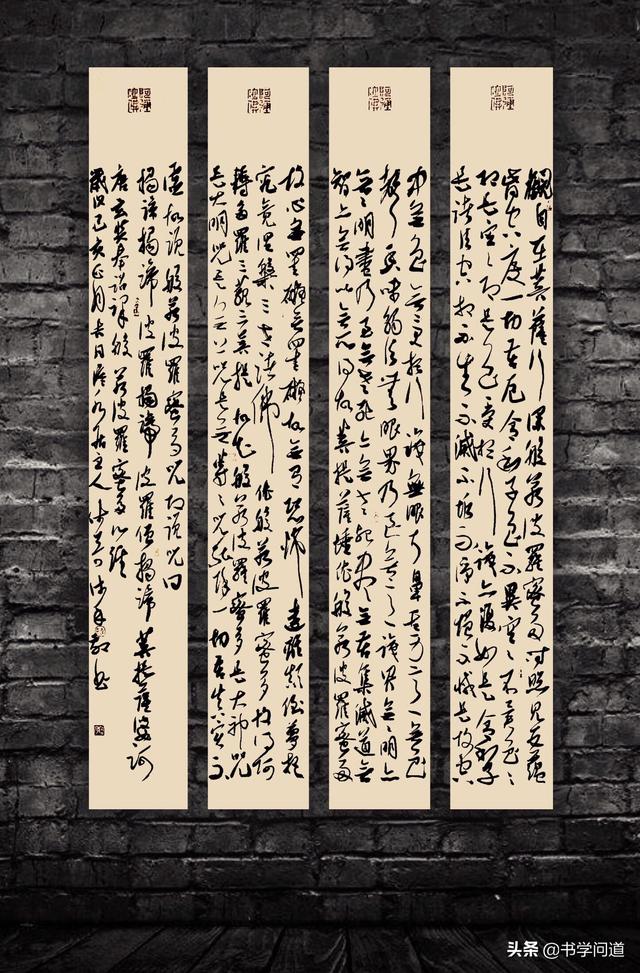 觀自在菩薩行深般若波羅蜜多時照見五蘊
皆空度一切苦厄舍利子色不異空空不異色色
即是空空即是色受想行識亦復如是舍利子
是諸法空相不生不滅不垢不淨不增不減是故空
中無色無受想行識無眼耳鼻舌身意無色
聲香味觸法無眼界乃至無意識界無無明亦
無無明盡乃至無老死亦無老死盡無苦集滅道無
智亦無得以無所得故菩提薩埵依般若波羅蜜多
故心無罣礙無罣礙故無有恐怖遠離顛倒夢想
究竟涅槃三世諸佛依般若波羅蜜多故得阿
耨多羅三藐三菩提故知般若波羅蜜多是大神咒
是大明咒是無上咒是無等等咒能除一切苦真實不
虛故說般若波羅蜜多咒即說咒曰
揭諦揭諦波羅揭諦波羅僧揭諦菩提薩婆訶
唐玄奘奉詔譯般若波羅蜜多心經
歲次己亥正月吉日主人敬書
头条 @书学问道